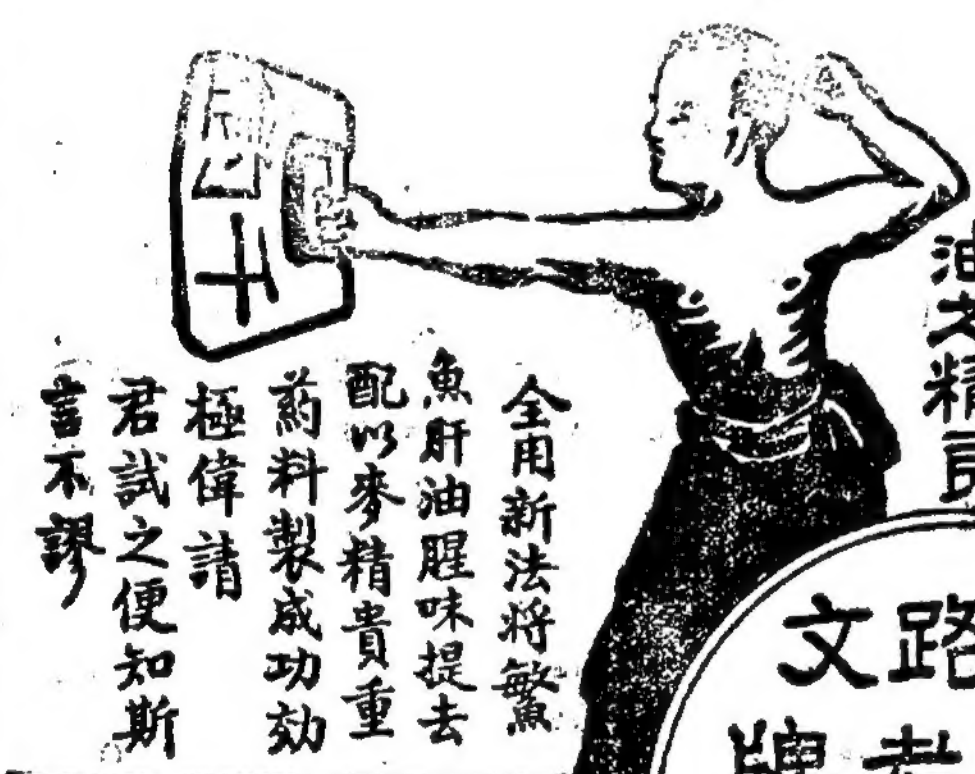 油
精
全用新法將鱉
魚肝油腥味提去
配以麥精貴重
葯料製成功効
極偉請
君試之便知斯
言不謬
路
文牌